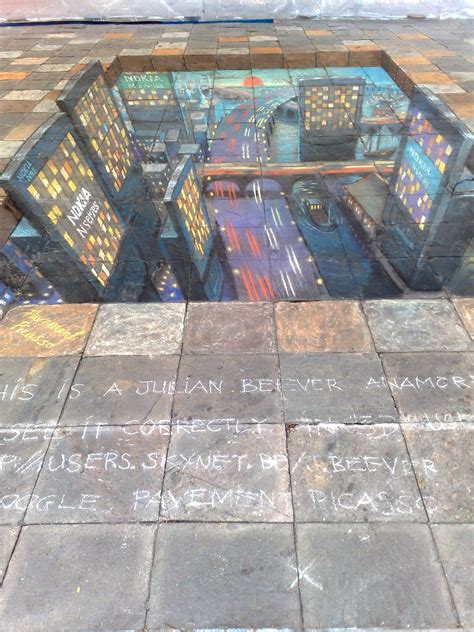 NOKIA
NOKIA
NOKIA
NSERIES
Pavement
Picasso
HIS IS A JULIAN BEEVER ANAMOR
SEE IT CORRECTLY
P//USERS.SKYNET.BE/ BEEVER
OOGLE PAVEMENT PICASSO
X